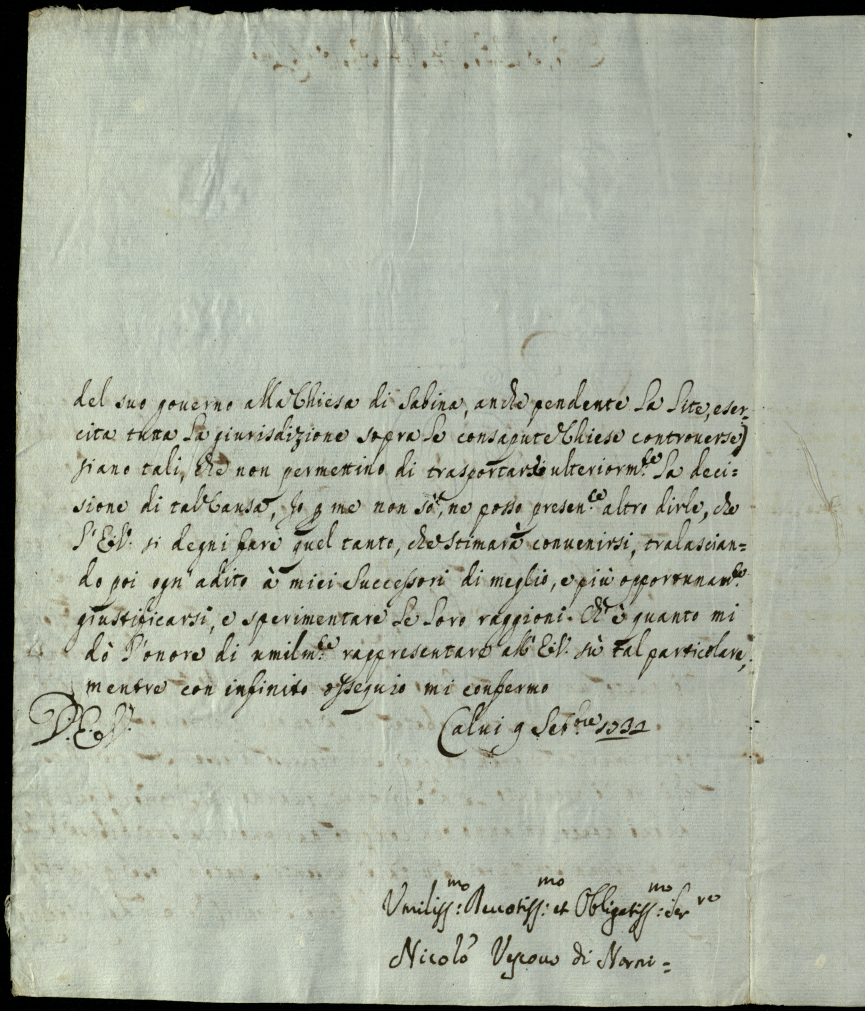 del suo governo alla Chiesa di Sabina, anche pendente la lite, eser-
cita tutta la giurisdizione sopra le consapute Chiese controverse)
siano tali, che non permettino di trasportarsi ulteriorm.te la deci=
sione di tal Causa, Io p me non sò, ne posso presen.te altro dirle, che
l'E.V. si degni fare quel tanto, che stimarà convenirsi, tralascian=
do poi ogn' adito à miei Successori di meglio, e più opportunam.te
giustificarsi, e sperimentare le loro raggioni. Ch' è quanto mi
dò l'onore di umilm.te rappresentare all' E.V. sù tal particolare,
mentre con infinito ossequio mi confermo
D. E. V.
Calvi 9 Sett.bre
Umiliss:mo Devotiss:mo et Obligatiss:mo Ser.re
Nicolò Vescovo di Narni=